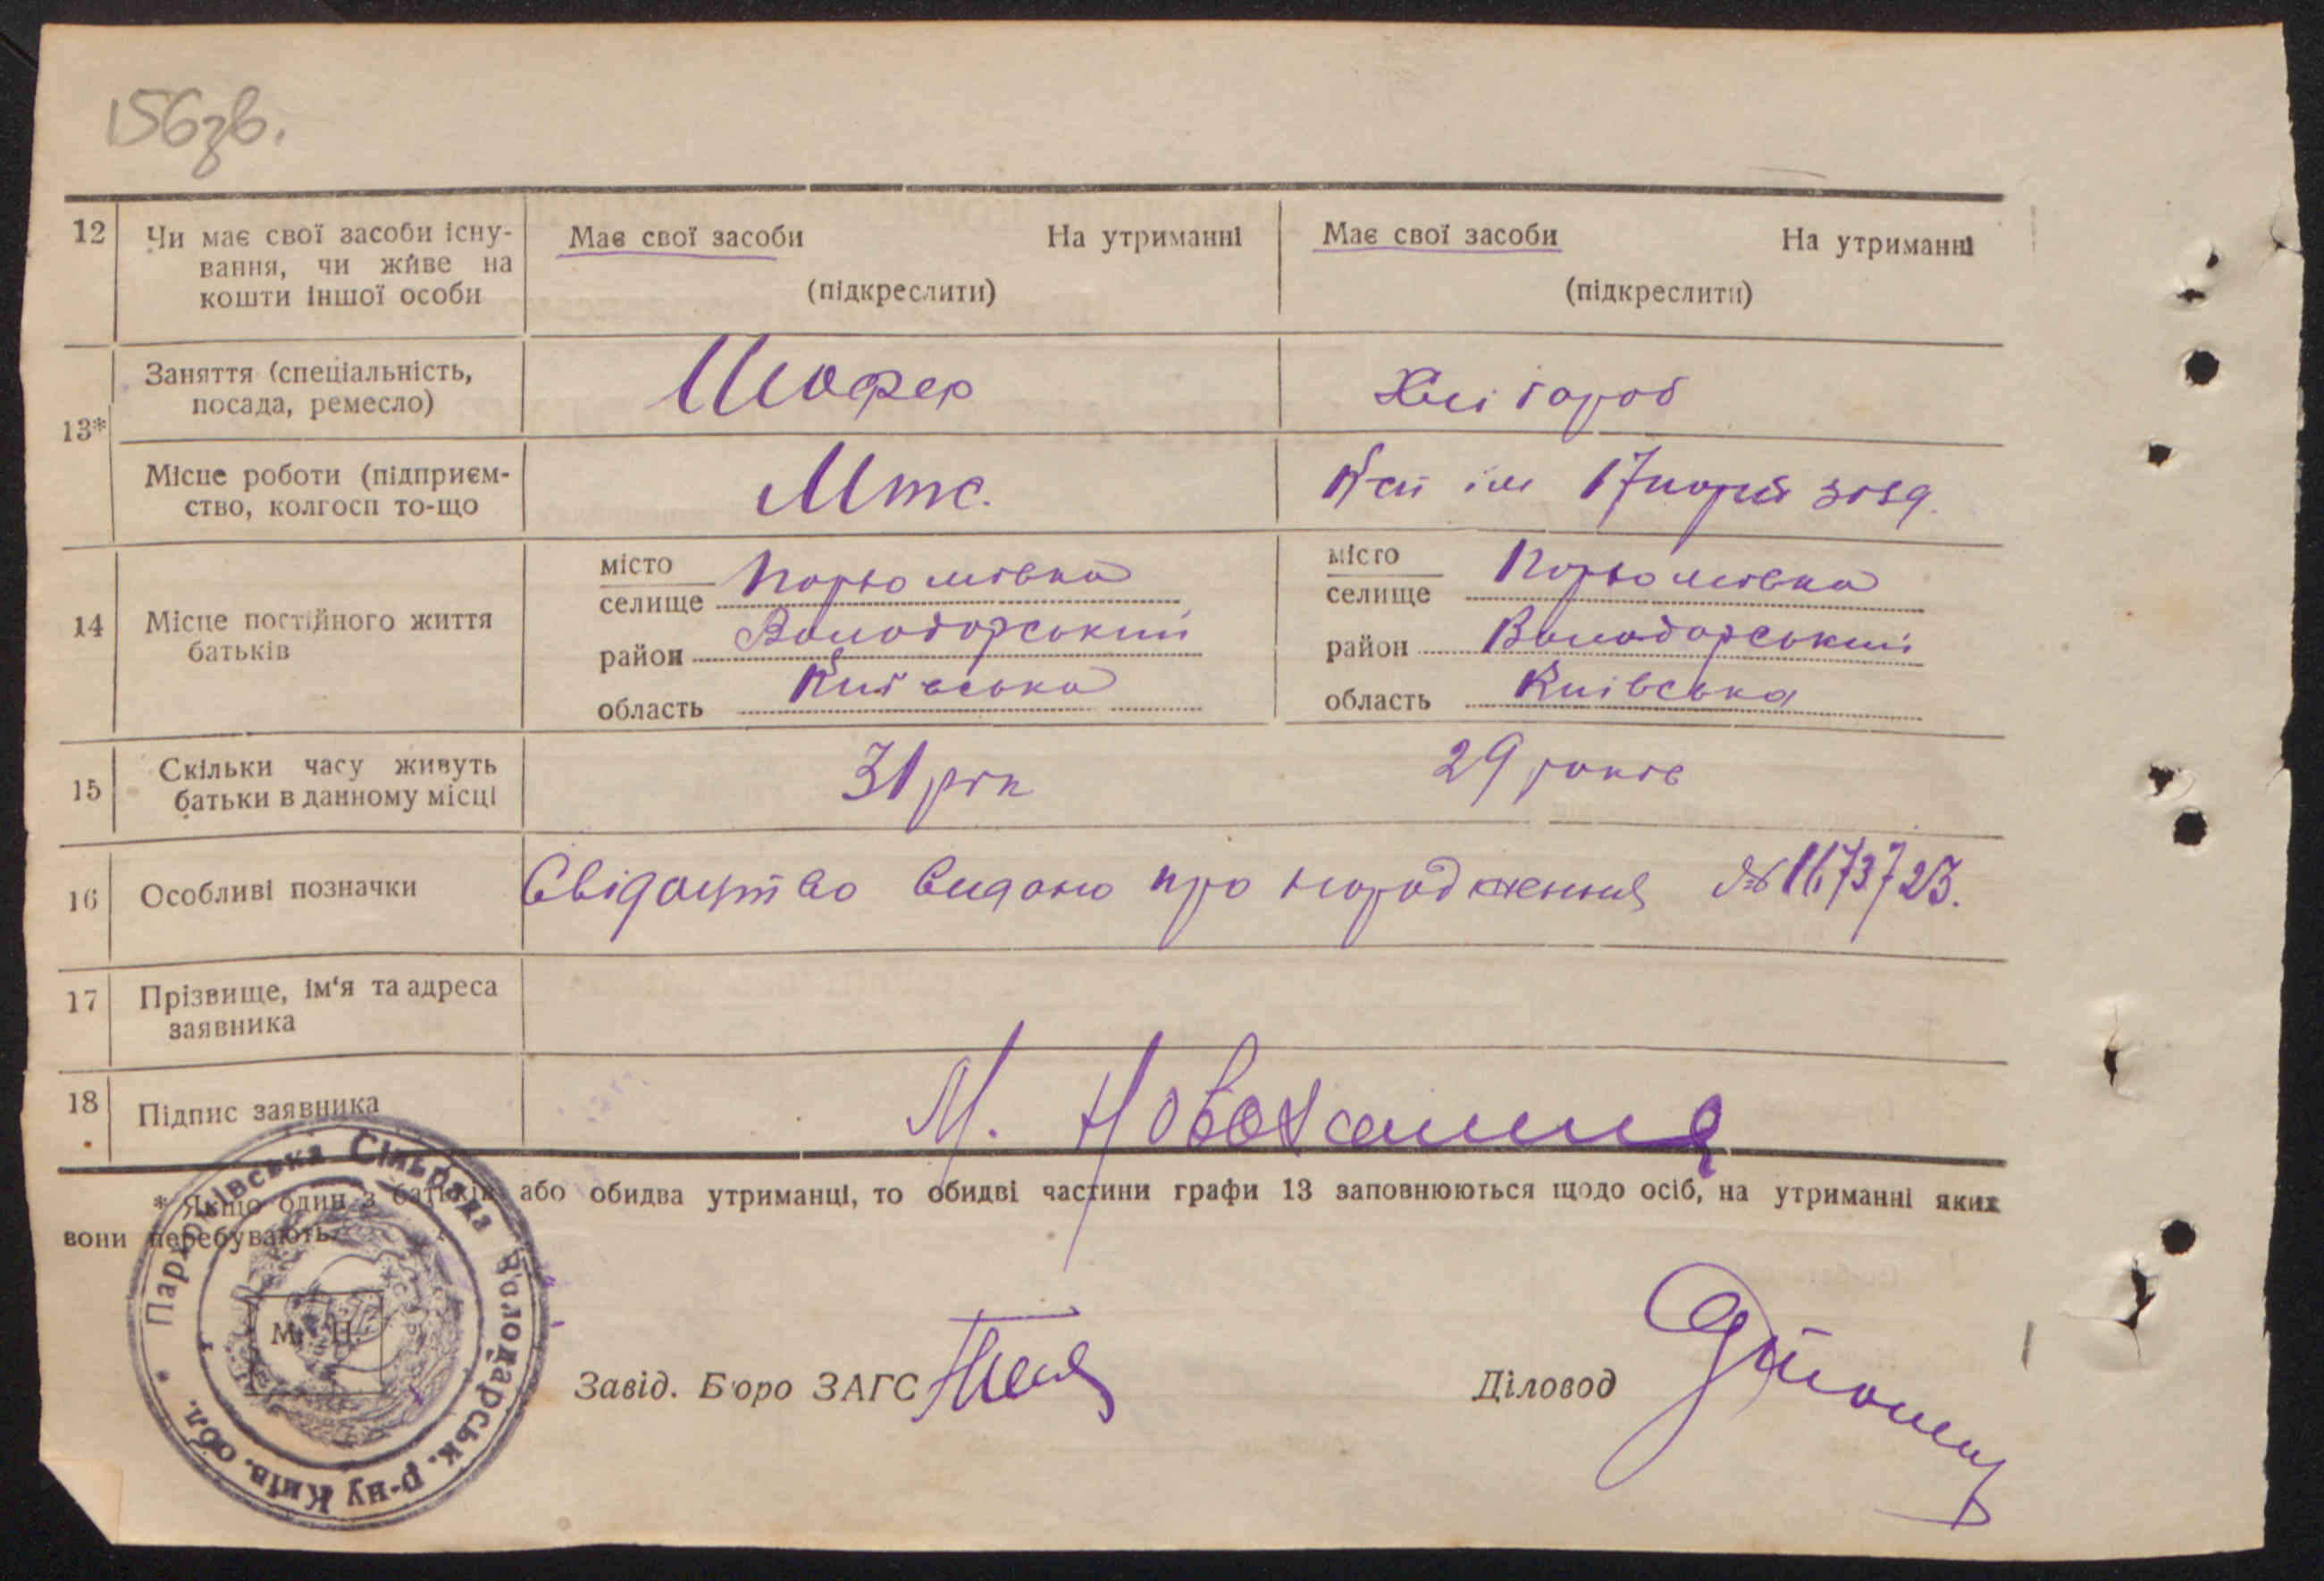 156зв.
12 Чи має свої засоби існу-
вання, чи живе на
кошти іншої особи
Має свої засоби На утриманні
(підкреслити)
Має свої засоби На утриманні
(підкреслити)
13*
Заняття (спеціальність,
посада, ремесло)
Шофер
Хлібороб
Місце роботи (підприєм-
ство, колгосп то-що
Мтс.
ім 17
14 Місце постійного життя
батьків
місто
селище
район Володарський
область Київська
місто
селище
район Володарський
область Київська
15 Скільки часу живуть
батьки в данному місці
31 рік
29 років
16 Особливі позначки
Свідоцтво видано про народження № 1673723.
17 Прізвище, ім'я та адреса
заявника
18 Підпис заявника
М.
* Якщо один з батьків або обидва утриманці, то обидві частини графи 13 заповнюються щодо осіб, на утриманні яких
вони перебувають.
Пархомівська Сільрада Володарськ. р-ну Київ. обл.
М. П.
Завід. Бюро ЗАГС
Діловод